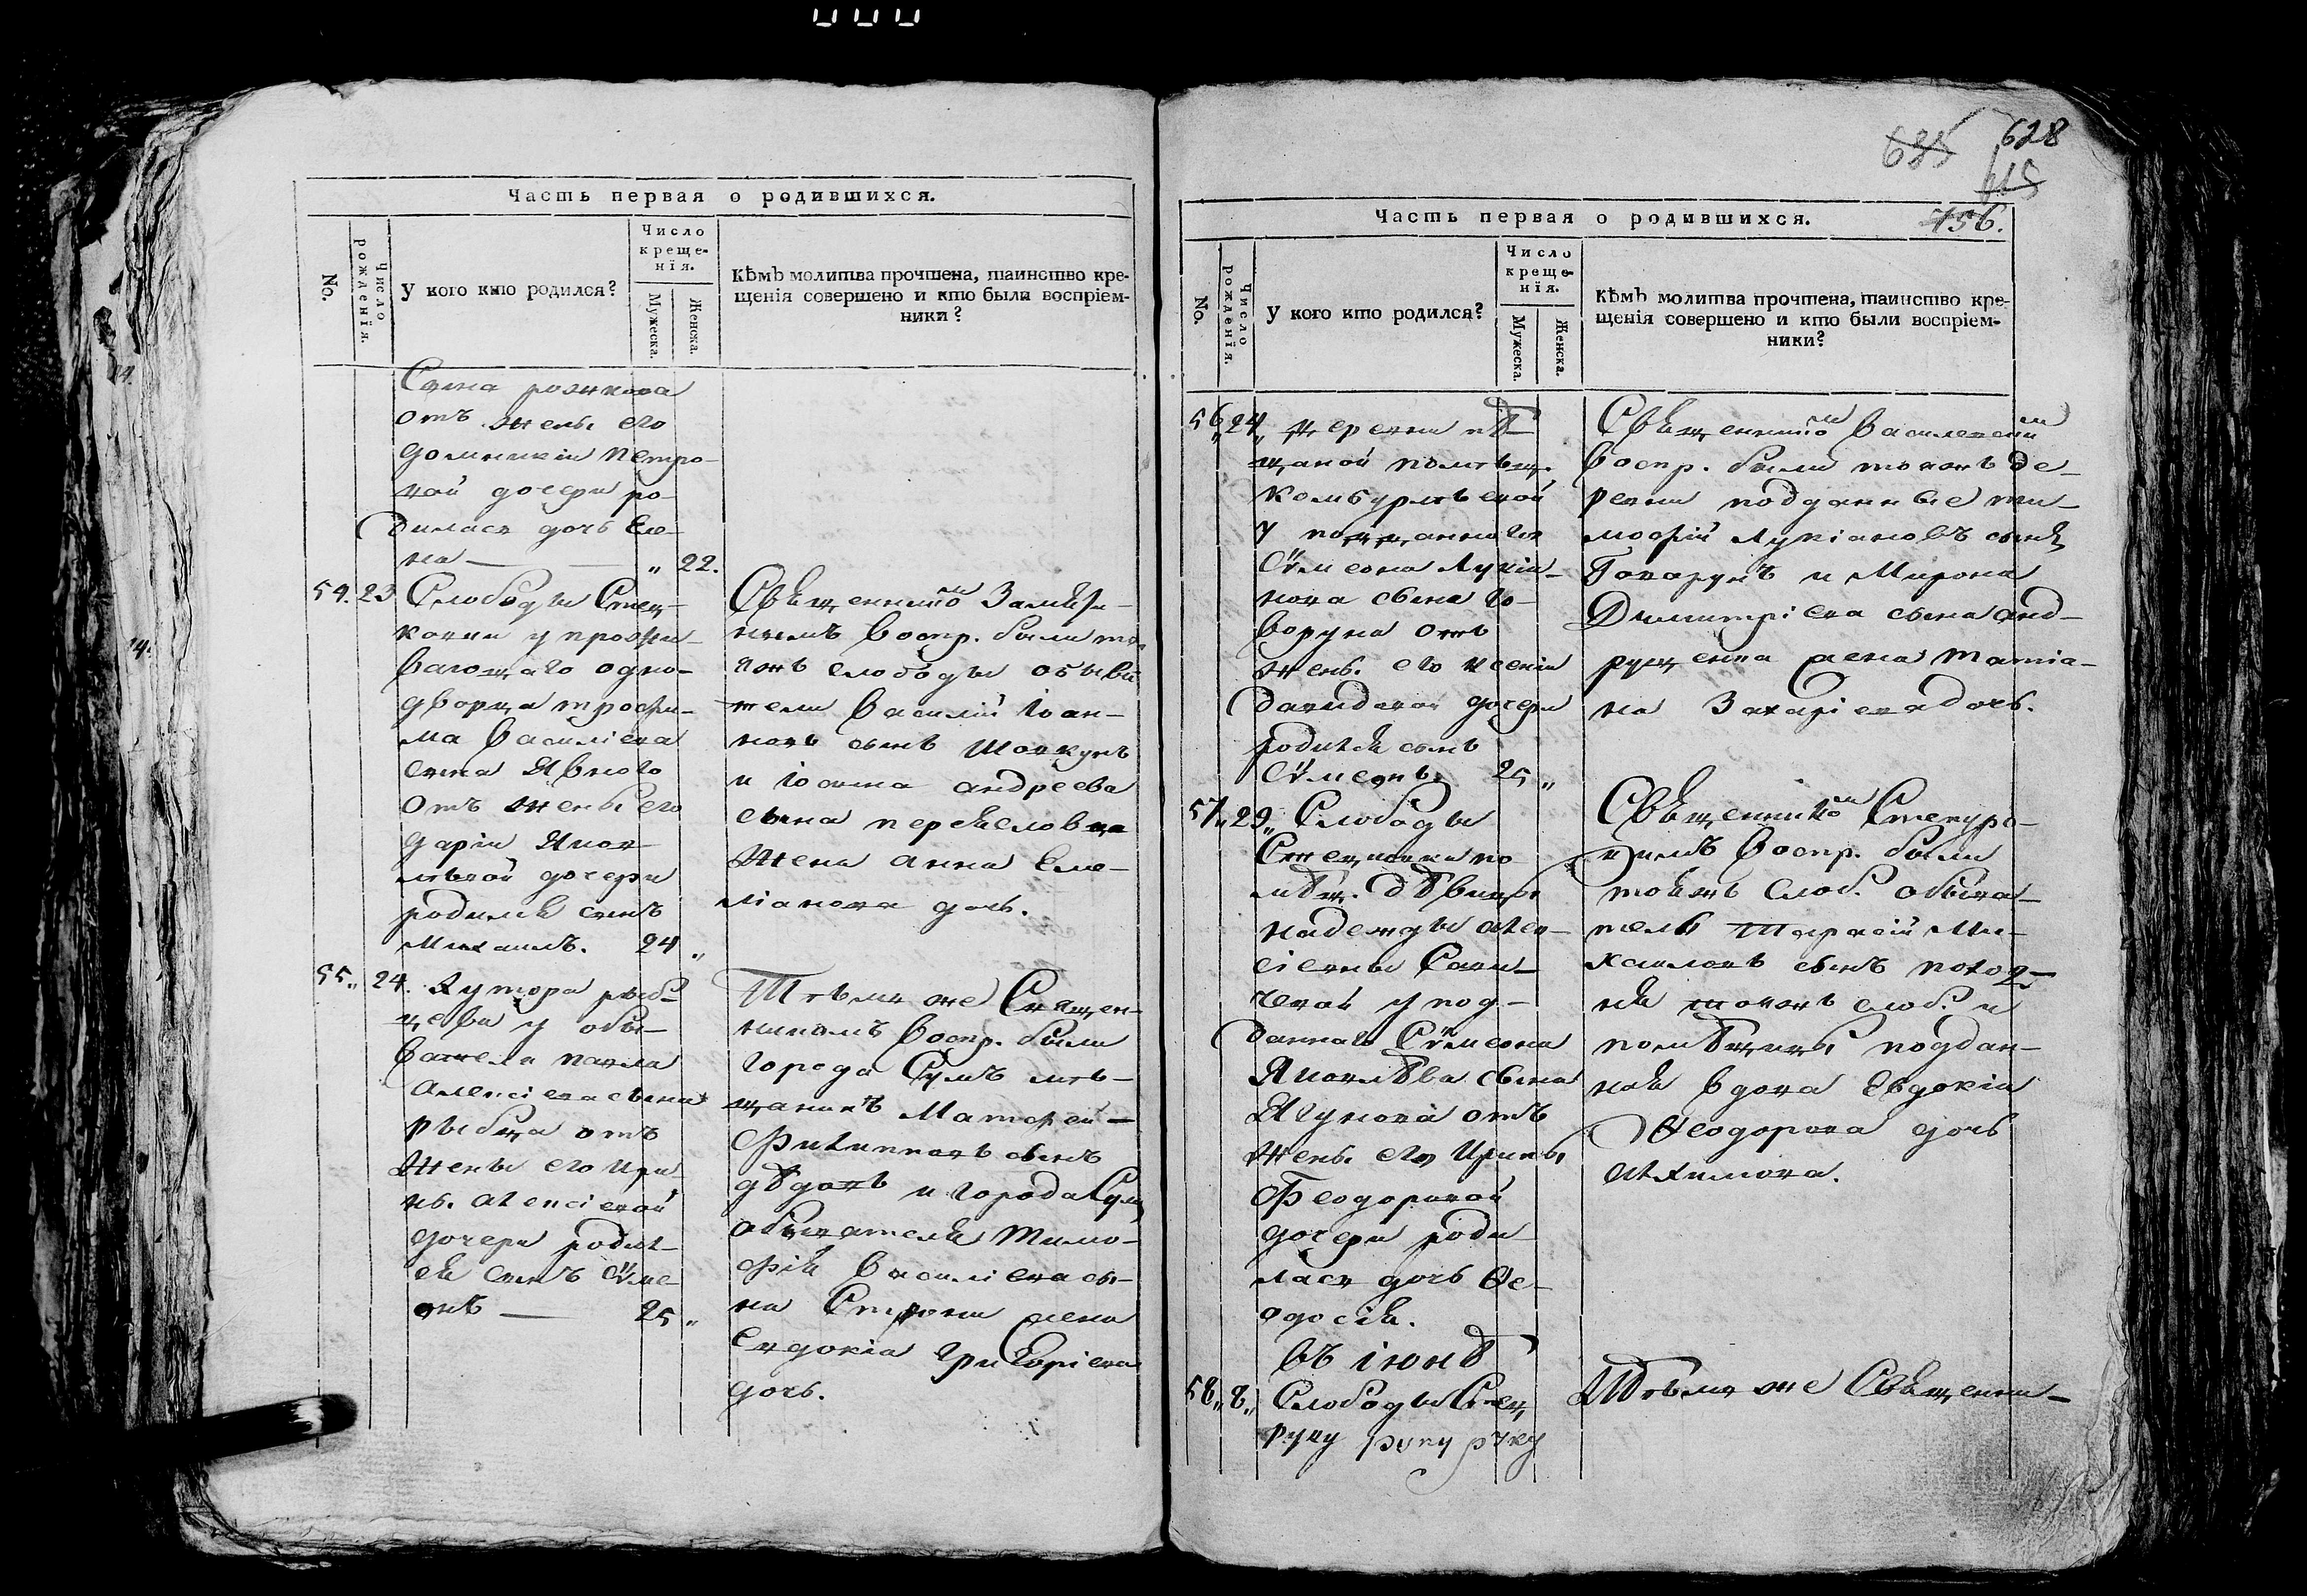 Часть первая о родившихся.
No.
Число рожденїя.
У кого кто родился?
Число
креще-
нїя.
Мужеска.
Женска.
Кѣмъ молитва прочтена, таинство кре-
щенія совершено и кто были воспріем-
ники?
Сына рожкова
отъ жены его
домникіи петро-
вой дочери ро-
дилася дочь Еле-
на — „ 22.
54. 23 Слободы Стец-
ковки у прожи-
вающаго одно-
дворца трофи-
ма василіева
сына
отъ жены его
дарїи Яков-
лѣвой дочери
родился сынъ
михаилъ. 24 „
Священникомъ
воспр. были то
яжъ слободы обыва
тели василїй Іоан-
новъ сынъ
и Іоанна андреева
сына
жена анна Еме-
ліанова дочь.
55„ 24. Хутора рыб-
цева у обы-
вателя павла
алексіева сына
рыбца отъ
жены его Ири
ны. алексіевой
дочери родил-
ся сынъ сѵме
онъ — 25 „
Тѣмъ же Священ-
никомъ воспр. были
города Сумъ мѣ-
щанинъ Матфей
Филипповъ сынъ
дѣдовъ и города Сум
обывателя Тимо-
фія Василіева сы-
на жена
Евдокія Григоріева
дочь.
685 628
615
456.
Часть первая о родившихся.
No.
Число рожденїя.
У кого кто родился?
Число
креще-
нїя.
Мужеска.
Женска.
Кѣмъ молитва прочтена, таинство кре-
щенія совершено и кто были воспріем-
ники?
56„ 24„
щаной помѣщ.
Комбурлѣевой
у подданнаго
Сѵмеона Лукїа-
нова сына Го-
воруна отъ
жены его ксеніи
давидовой дочери
родился сынъ
Сѵмеонъ. 25 „
Священникомъ Василевскимъ
воспр. были тояжъ де-
ревни подданные ти-
мофїй Лукїановъ сынъ
Говорунъ и Мирона
Димитріева сына анд-
рущенка жена татїа-
на Захаріева дочь.
57„ 29„ Слободы
Стецковки по
мѣщ. дѣвицы
надежды алек-
сіевны Сави-
чевой у под-
даннаго Сѵмеона
Яковлѣва сына
Ягунова отъ
жены его Ирины
Феодоровой
дочери роди
лася дочь Ѳе-
одосія.
Священникомъ
воспр. были
тояжъ слоб. обыва-
тель Тарасій Ми-
хаиловъ сынъ
тояжъ слоб. и
помѣщицы поддан-
ная вдова Евдокія
Ѳеодорова дочь
въ іюнѣ
58„ 8„ Слободы Стец
руку руку руку
Тѣмъ же Священни-